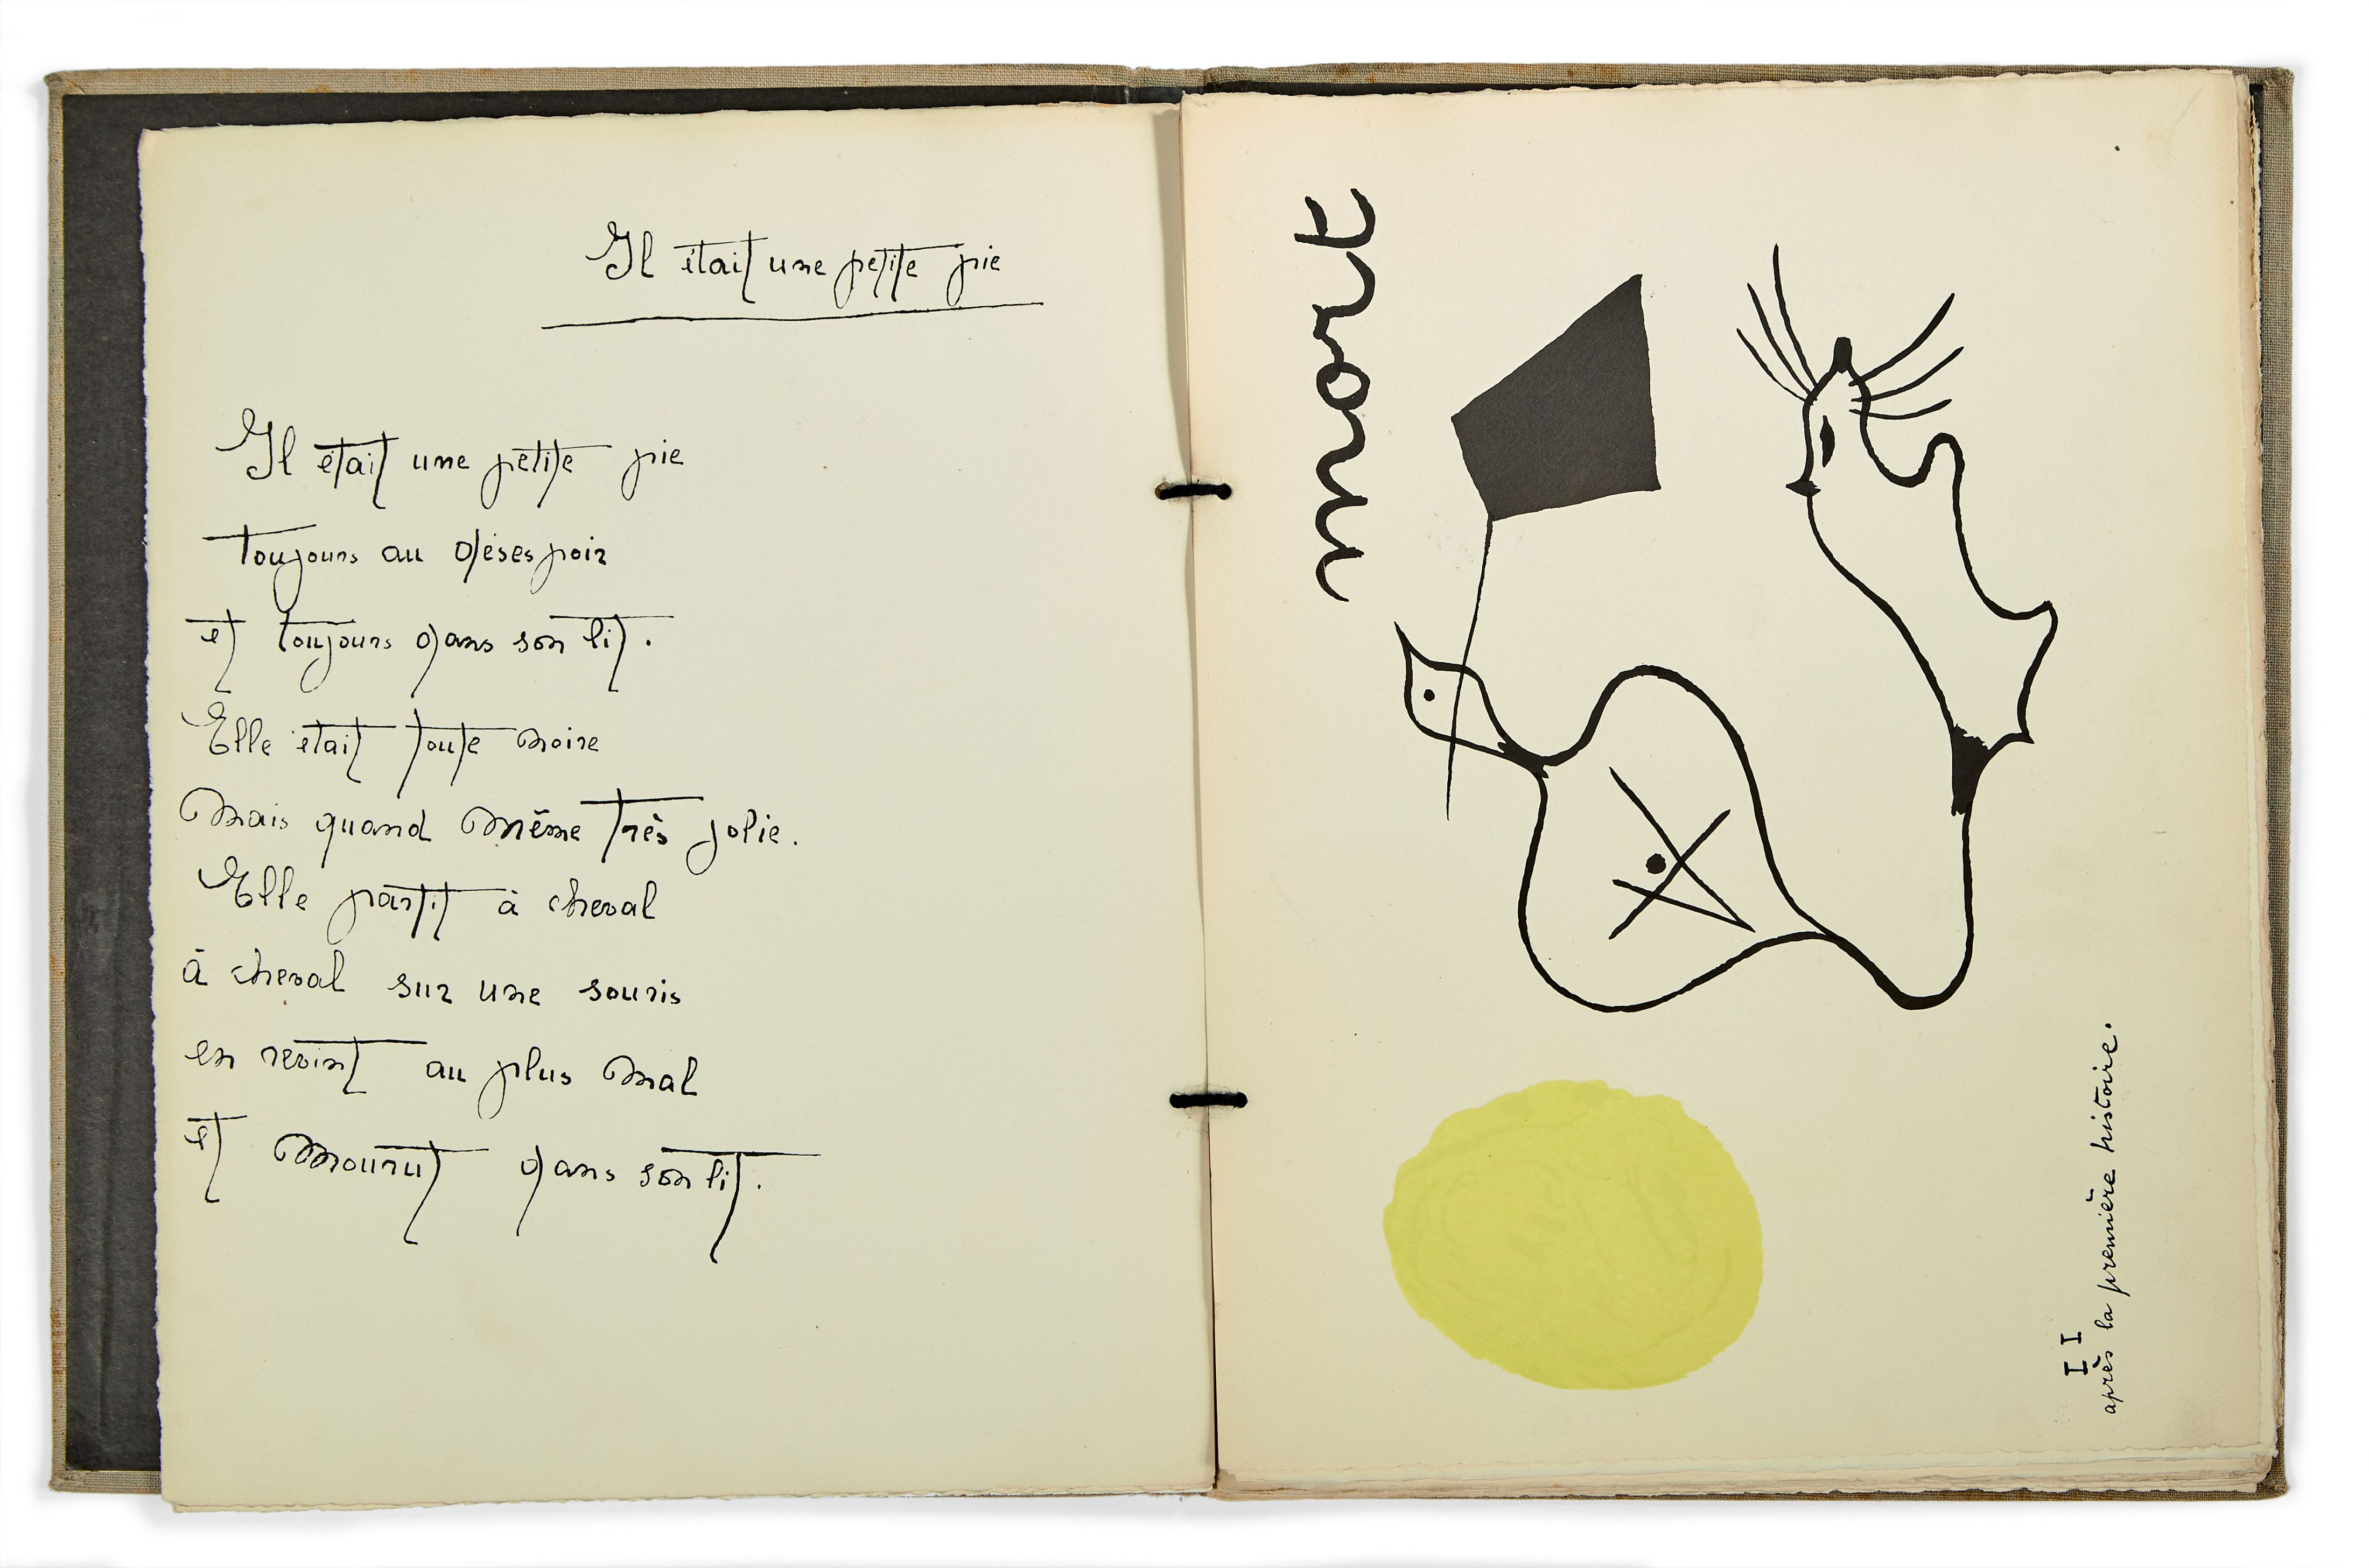 Il était une petite pie
Il était une petite pie
toujours au désespoir
et toujours dans son lit.
Elle était toute noire
Mais quand Même très jolie.
Elle partit à cheval
à cheval sur une souris
en revint au plus Mal
et Mourut dans son lit.
mort
II
après la première histoire.